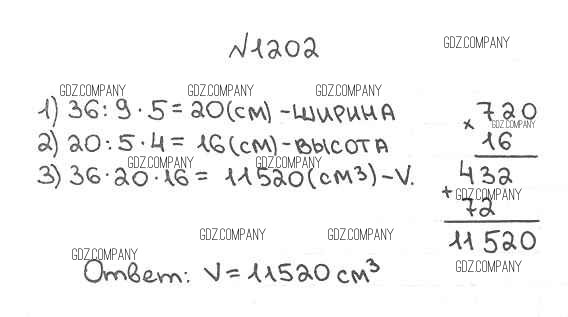 N1202
GDZ.COMPANY
GDZ.COMPANY GDZ.COMPANY GDZ.COMPANY
1) 36 : 9 · 5 = 20 (см) - ШИРИНА
2) 20 : 5 · 4 = 16 (см) - ВЫСОТА
GDZ.COMPANY GDZ.COMPANY
3) 36 · 20 · 16 = 11520 (см3) - V.
× 720
GDZ.COMPANY
16
432
+ GDZ.COMPANY
72
11520
GDZ.COMPANY GDZ.COMPANY
GDZ.COMPANY
GDZ.COMPANY
Ответ: V = 11520 см³